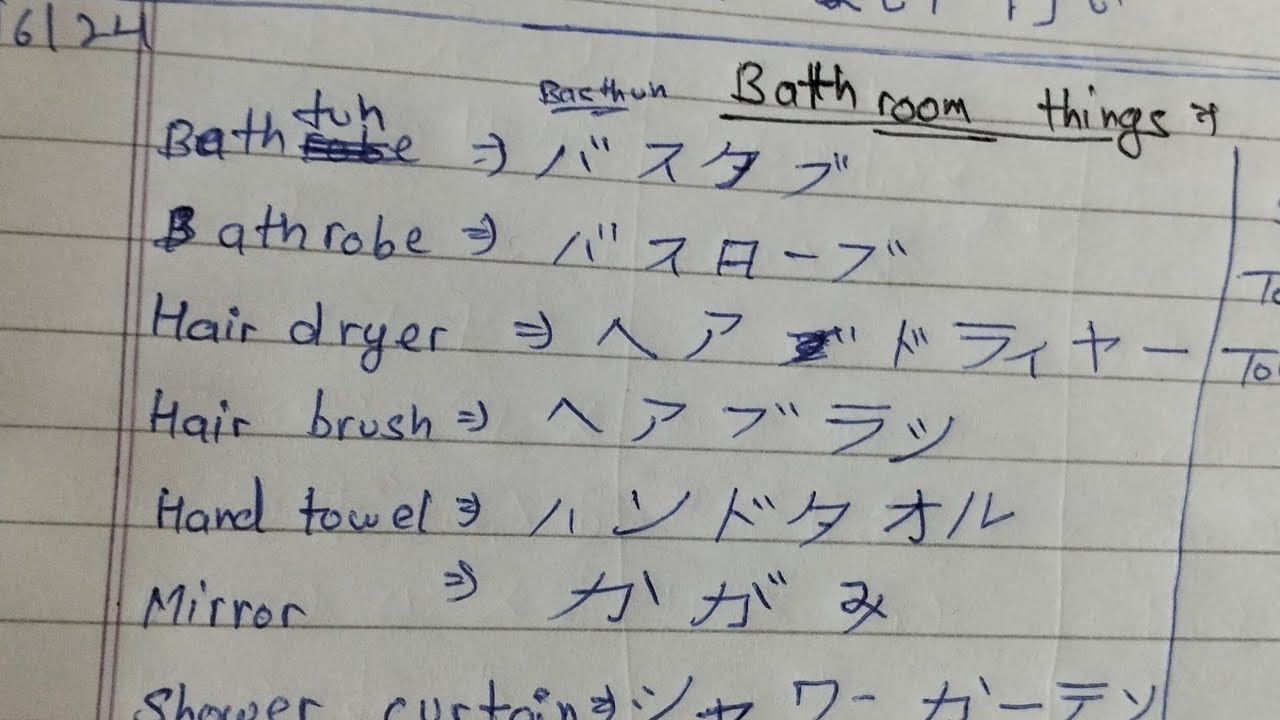 6/24
Bacthun Bath room things
Bath tuh ⇒ バスタブ
Bathrobe ⇒ バスローブ
Hair dryer ⇒ ヘアドライヤー
Hair brush ⇒ ヘアブラツ
Hand towel ⇒ ハンドタオル
Mirror ⇒ かがみ
Shower curtain ⇒ シャワーガーテン